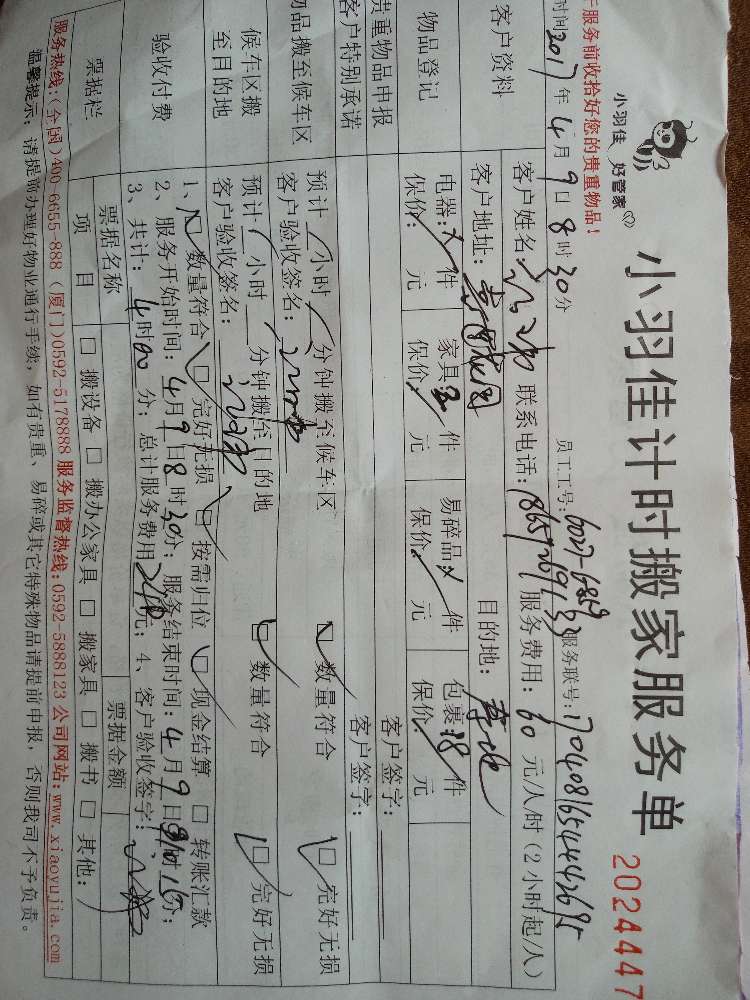 小羽佳 好管家
小羽佳计时搬家服务单
2024447
于服务前收拾好您的贵重物品!
员工工号: 服务联号:
时间2017年4月9日8时30分
客户资料
客户姓名: 联系电话: 服务费用:60元/人时(2小时起/人)
客户地址: 目的地:
物品登记
电器: 件 家具: 件 易碎品: 件 包裹: 件
保价: 元 保价: 元 保价: 元 保价: 元
贵重物品申报 客户签字:
客户特别承诺 客户签字:
物品搬至候车区
预计 小时 分钟搬至候车区 □数量符合 □完好无损
客户验收签名:
候车区搬至目的地
预计 小时 分钟搬至目的地 □数量符合 □完好无损
客户验收签名:
验收付费
1、□数量符合 □完好无损 □按需归位 □现金结算 □转账汇款
2、服务开始时间:4月9日8时30分;服务结束时间:4月9日 时 分;
3、共计:4时00分;总计服务费用240元;4、客户验收签字:
票据栏
票据名称 票据金额
项目 □搬设备 □搬办公家具 □搬家具 □搬书 □其他:
服务热线:(全国)400-6655-888 (厦门)0592-5178888 服务监督热线:0592-5888123 公司网站:www.xiaoyujia.com
温馨提示:请提前办理好物业通行手续,如有贵重、易碎或其它特殊物品请提前申报,否则我司不予负责。